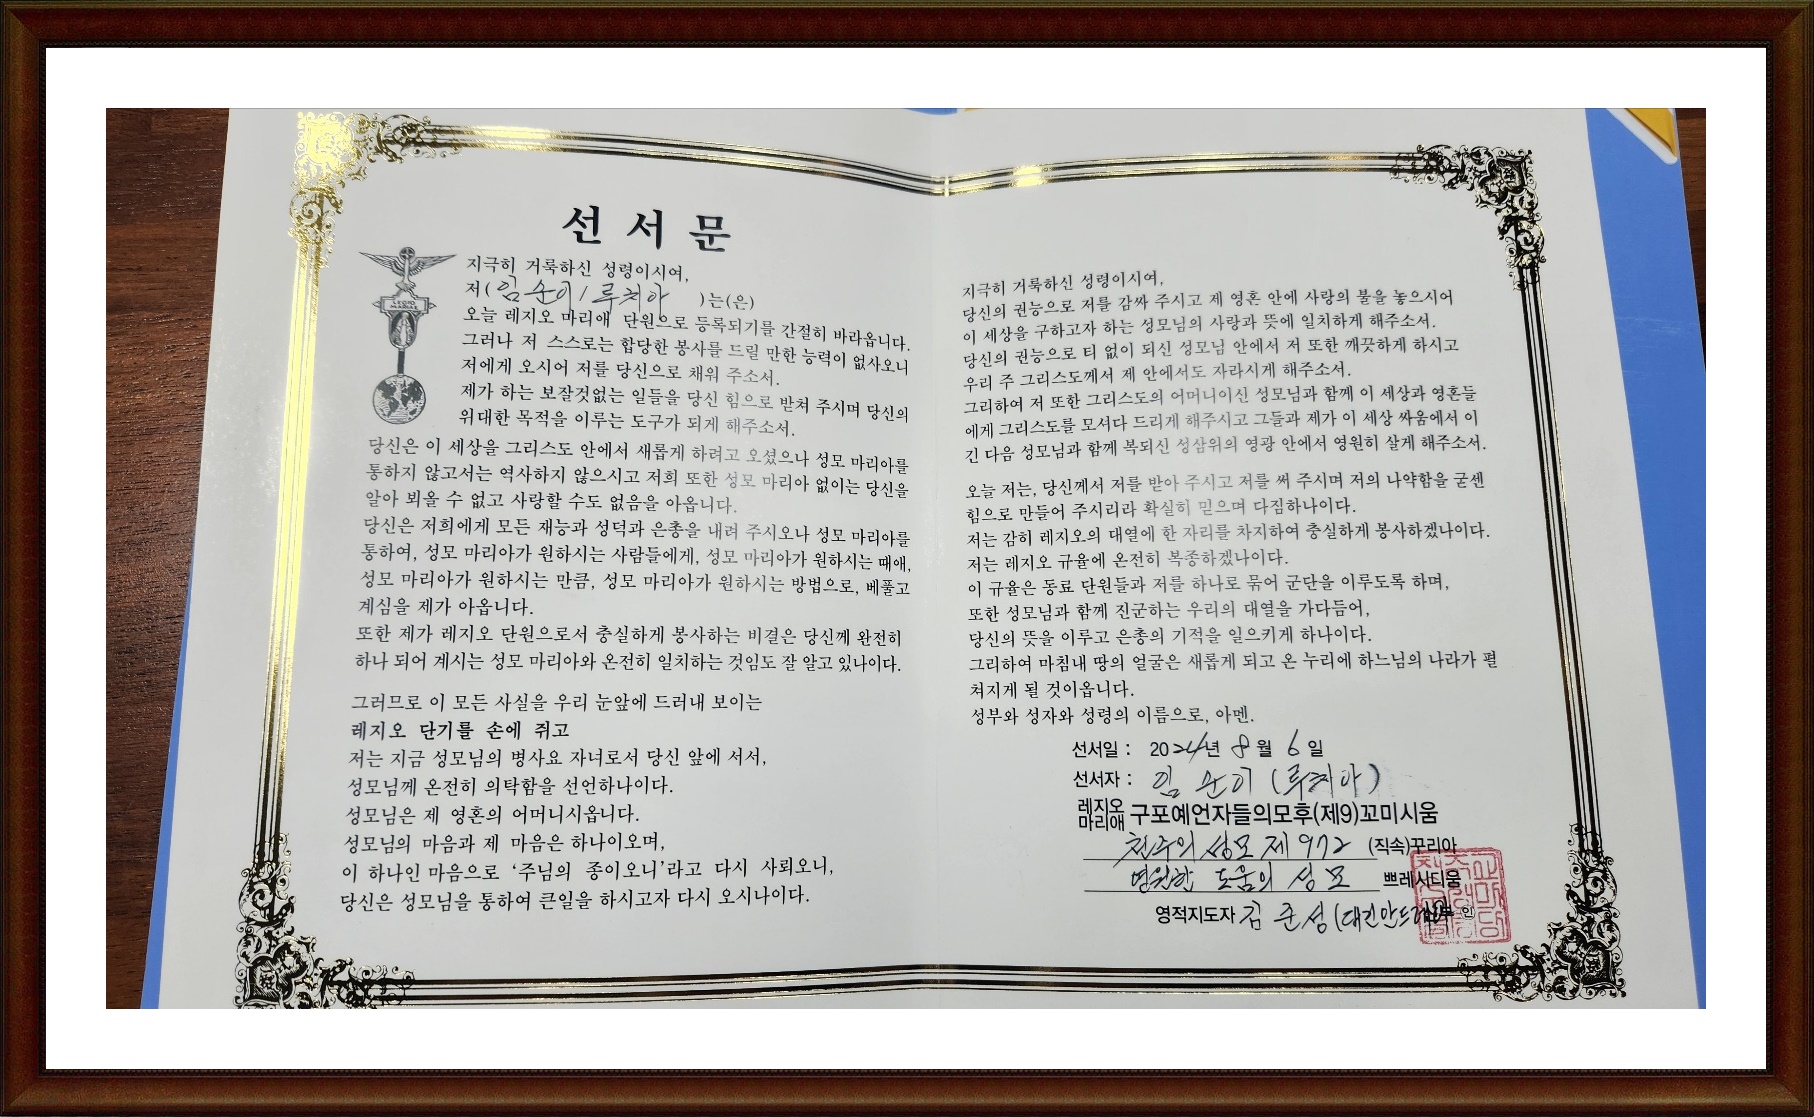 선서문
LEGIO
MARIAE
지극히 거룩하신 성령이시여,
저( 임순이/루치아 )는(은)
오늘 레지오 마리애 단원으로 등록되기를 간절히 바라옵니다.
그러나 저 스스로는 합당한 봉사를 드릴 만한 능력이 없사오니
저에게 오시어 저를 당신으로 채워 주소서.
제가 하는 보잘것없는 일들을 당신 힘으로 받쳐 주시며 당신의
위대한 목적을 이루는 도구가 되게 해주소서.
당신은 이 세상을 그리스도 안에서 새롭게 하려고 오셨으나 성모 마리아를
통하지 않고서는 역사하지 않으시고 저희 또한 성모 마리아 없이는 당신을
알아 뵈올 수 없고 사랑할 수도 없음을 아옵니다.
당신은 저희에게 모든 재능과 성덕과 은총을 내려 주시오나 성모 마리아를
통하여, 성모 마리아가 원하시는 사람들에게, 성모 마리아가 원하시는 때애,
성모 마리아가 원하시는 만큼, 성모 마리아가 원하시는 방법으로, 베풀고
계심을 제가 아옵니다.
또한 제가 레지오 단원으로서 충실하게 봉사하는 비결은 당신께 완전히
하나 되어 계시는 성모 마리아와 온전히 일치하는 것임도 잘 알고 있나이다.
그러므로 이 모든 사실을 우리 눈앞에 드러내 보이는
레지오 단기를 손에 쥐고
저는 지금 성모님의 병사요 자녀로서 당신 앞에 서서,
성모님께 온전히 의탁함을 선언하나이다.
성모님은 제 영혼의 어머니시옵니다.
성모님의 마음과 제 마음은 하나이오며,
이 하나인 마음으로 '주님의 종이오니'라고 다시 사뢰오니,
당신은 성모님을 통하여 큰일을 하시고자 다시 오시나이다.
지극히 거룩하신 성령이시여,
당신의 권능으로 저를 감싸 주시고 제 영혼 안에 사랑의 불을 놓으시어
이 세상을 구하고자 하는 성모님의 사랑과 뜻에 일치하게 해주소서.
당신의 권능으로 티 없이 되신 성모님 안에서 저 또한 깨끗하게 하시고
우리 주 그리스도께서 제 안에서도 자라시게 해주소서.
그리하여 저 또한 그리스도의 어머니이신 성모님과 함께 이 세상과 영혼들
에게 그리스도를 모셔다 드리게 해주시고 그들과 제가 이 세상 싸움에서 이
긴 다음 성모님과 함께 복되신 성삼위의 영광 안에서 영원히 살게 해주소서.
오늘 저는, 당신께서 저를 받아 주시고 저를 써 주시며 저의 나약함을 굳센
힘으로 만들어 주시리라 확실히 믿으며 다짐하나이다.
저는 감히 레지오의 대열에 한 자리를 차지하여 충실하게 봉사하겠나이다.
저는 레지오 규율에 온전히 복종하겠나이다.
이 규율은 동료 단원들과 저를 하나로 묶어 군단을 이루도록 하며,
또한 성모님과 함께 진군하는 우리의 대열을 가다듬어,
당신의 뜻을 이루고 은총의 기적을 일으키게 하나이다.
그리하여 마침내 땅의 얼굴은 새롭게 되고 온 누리에 하느님의 나라가 펼
쳐지게 될 것이옵니다.
성부와 성자와 성령의 이름으로, 아멘.
선서일 : 2024년 8월 6일
선서자 : 임순이 (루치아)
레지오 마리애 구포예언자들의모후(제9)꼬미시움
천주의 성모 제972 (직속)꾸리아
영원한 도움의 성모 쁘레시디움
영적지도자 김준성(대건안드레아) 인